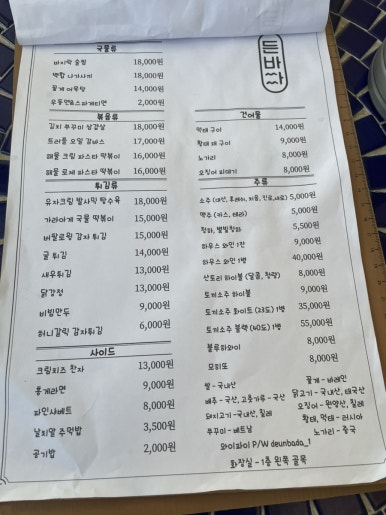 듣바싸
국물류
바지락 술찜 18,000원
백합 나가사끼 18,000원
꽃게 어묵탕 14,000원
우동면&스파게티면 2,000원
볶음류
김치 쭈꾸미 삼겹살 18,000원
트러플 오일 감바스 17,000원
해물 크림 파스타 떡볶이 16,000원
해물 로제 파스타 떡볶이 16,000원
튀김류
유자크림 발사믹 탕수육 18,000원
가라아게 국물 떡볶이 15,000원
버팔로윙 감자 튀김 15,000원
굴 튀김 14,000원
새우튀김 13,000원
닭강정 13,000원
비빔만두 9,000원
허니갈릭 감자튀김 6,000원
사이드
크림치즈 감자 13,000원
홍게라면 9,000원
파인샤베트 8,000원
날치알 주먹밥 3,500원
공기밥 2,000원
건어물
먹태 구이 14,000원
황태 채 구이 9,000원
노가리 8,000원
오징어 찌애기 8,000원
주류
소주 (대선, 후레쉬, 처음, 진로, 새로) 5,000원
맥주 (카스, 테라) 5,000원
청하, 별빛청하 5,500원
하우스 와인 1잔 9,000원
하우스 와인 1병 40,000원
산토리 하이볼 (달콤, 청량) 8,000원
토끼소주 하이볼 9,000원
토끼소주 화이트 (23도) 1병 35,000원
토끼소주 블랙 (40도) 1병 55,000원
블루하와이 8,000원
모히또 8,000원
쌀 - 국내산 꽃게 - 바레인
배추 - 국산, 고춧가루 - 국산 닭고기 - 국내산, 태국산
돼지고기 - 국내산, 칠레 오징어 - 원양산, 칠레
쭈꾸미 - 베트남 황태, 먹태 - 러시아
노가리 - 중국
와이파이 P/W deunbada_1
화장실 - 1층 왼쪽 골목